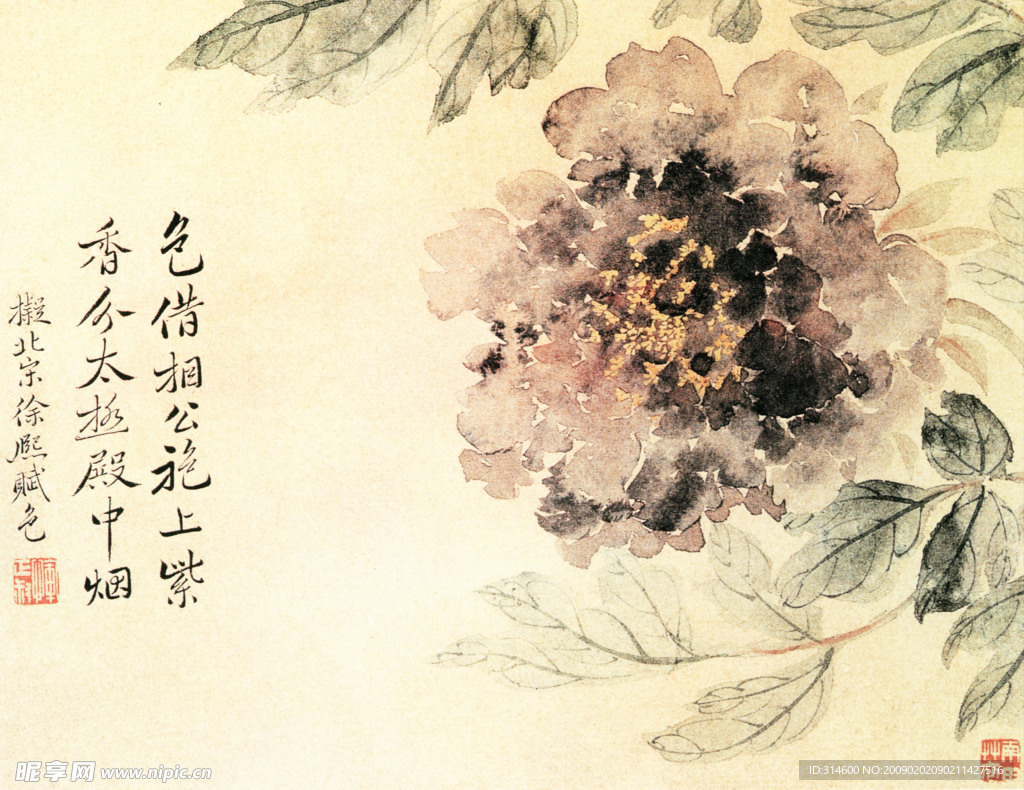 色借相公袍上紫
香分太极殿中烟
擬北宗徐熙賦色
昵享网 www.nipic.cn
ID:314600 NO:20090202090211427516